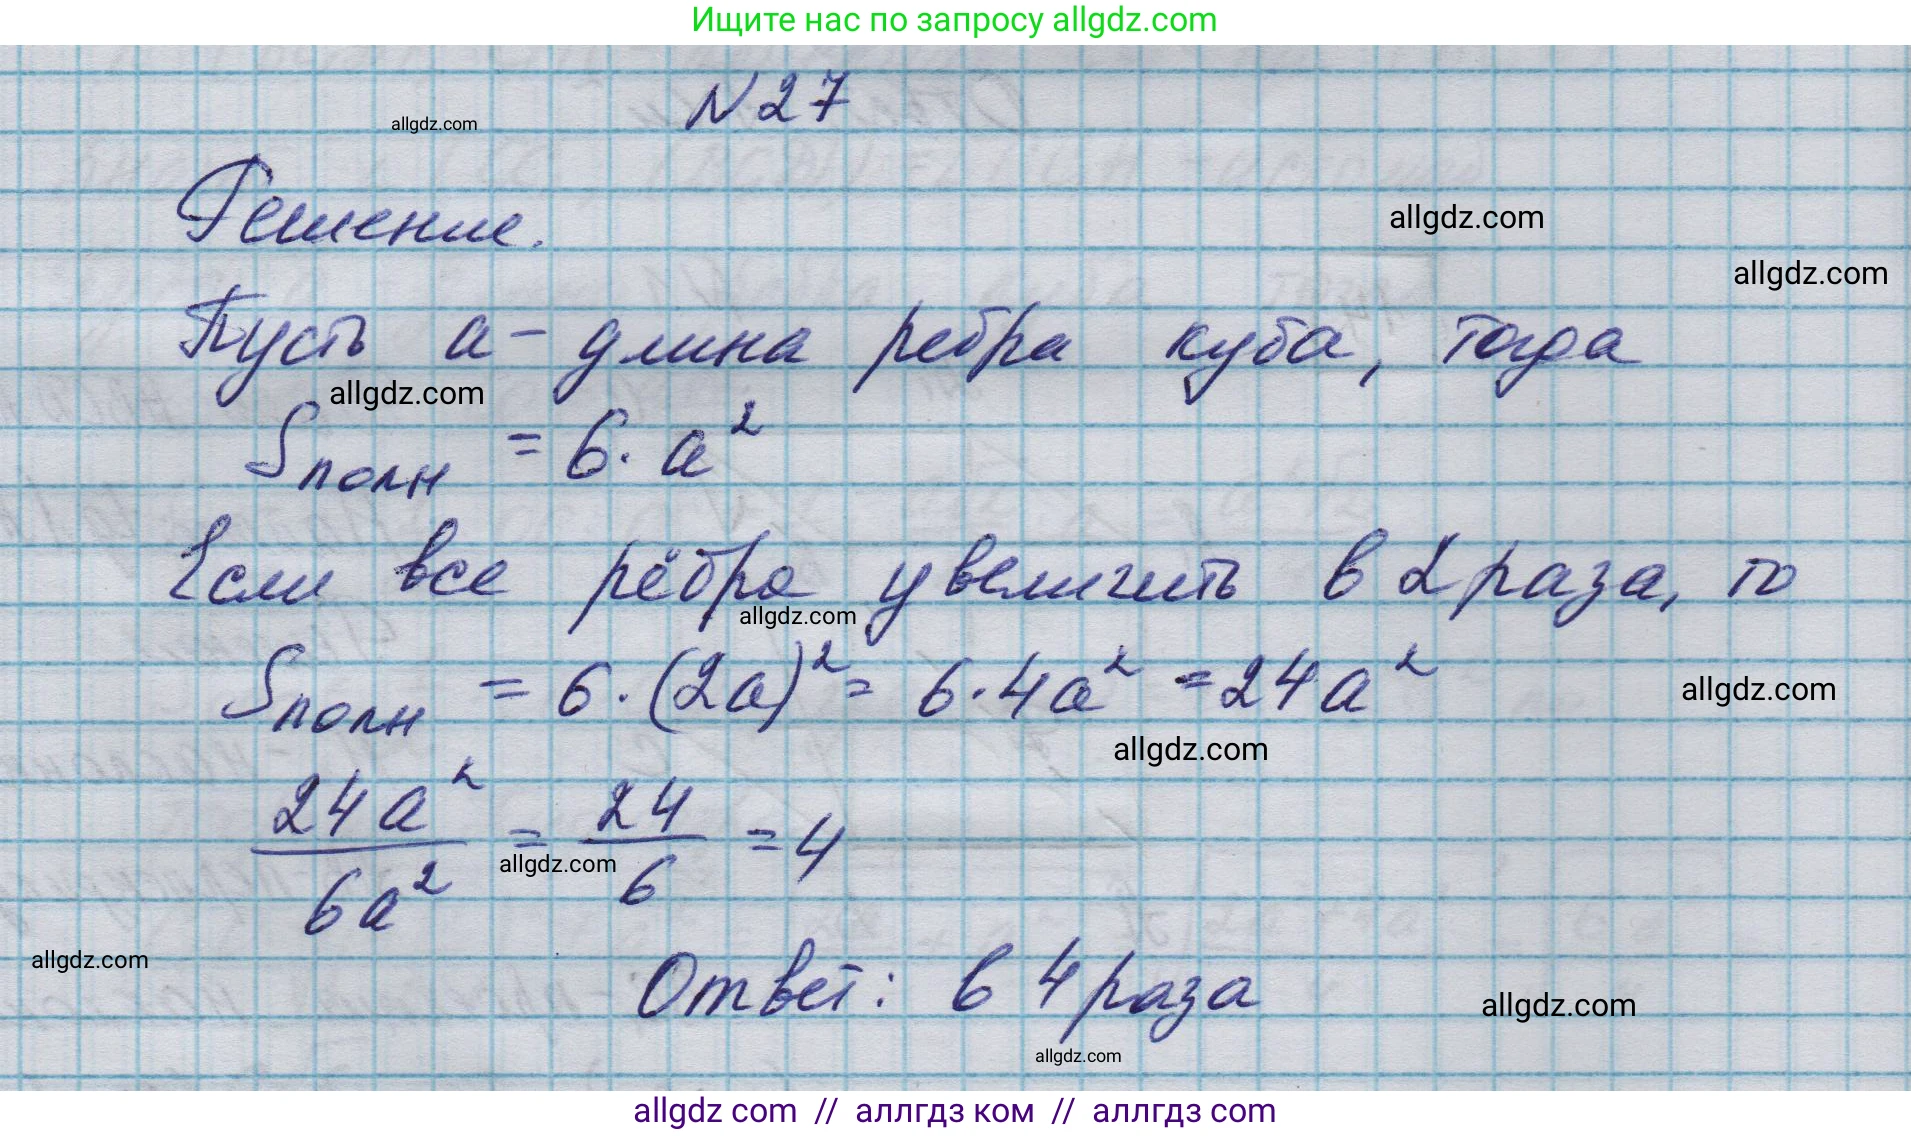 Ищите нас по запросу allgdz.com
N27
allgdz.com
Решение.
allgdz.com
allgdz.com
Пусть a - длина ребра куба, тогда
allgdz.com
Sполн = 6 · a²
Если все рёбра увеличить в 2 раза, то
allgdz.com
Sполн = 6 · (2a)² = 6 · 4a² = 24a²
allgdz.com
allgdz.com
24a² / 6a² = 24 / 6 = 4
allgdz.com
allgdz.com
Ответ: в 4 раза
allgdz.com
allgdz.com
allgdz com // аллгдз ком // аллгдз com